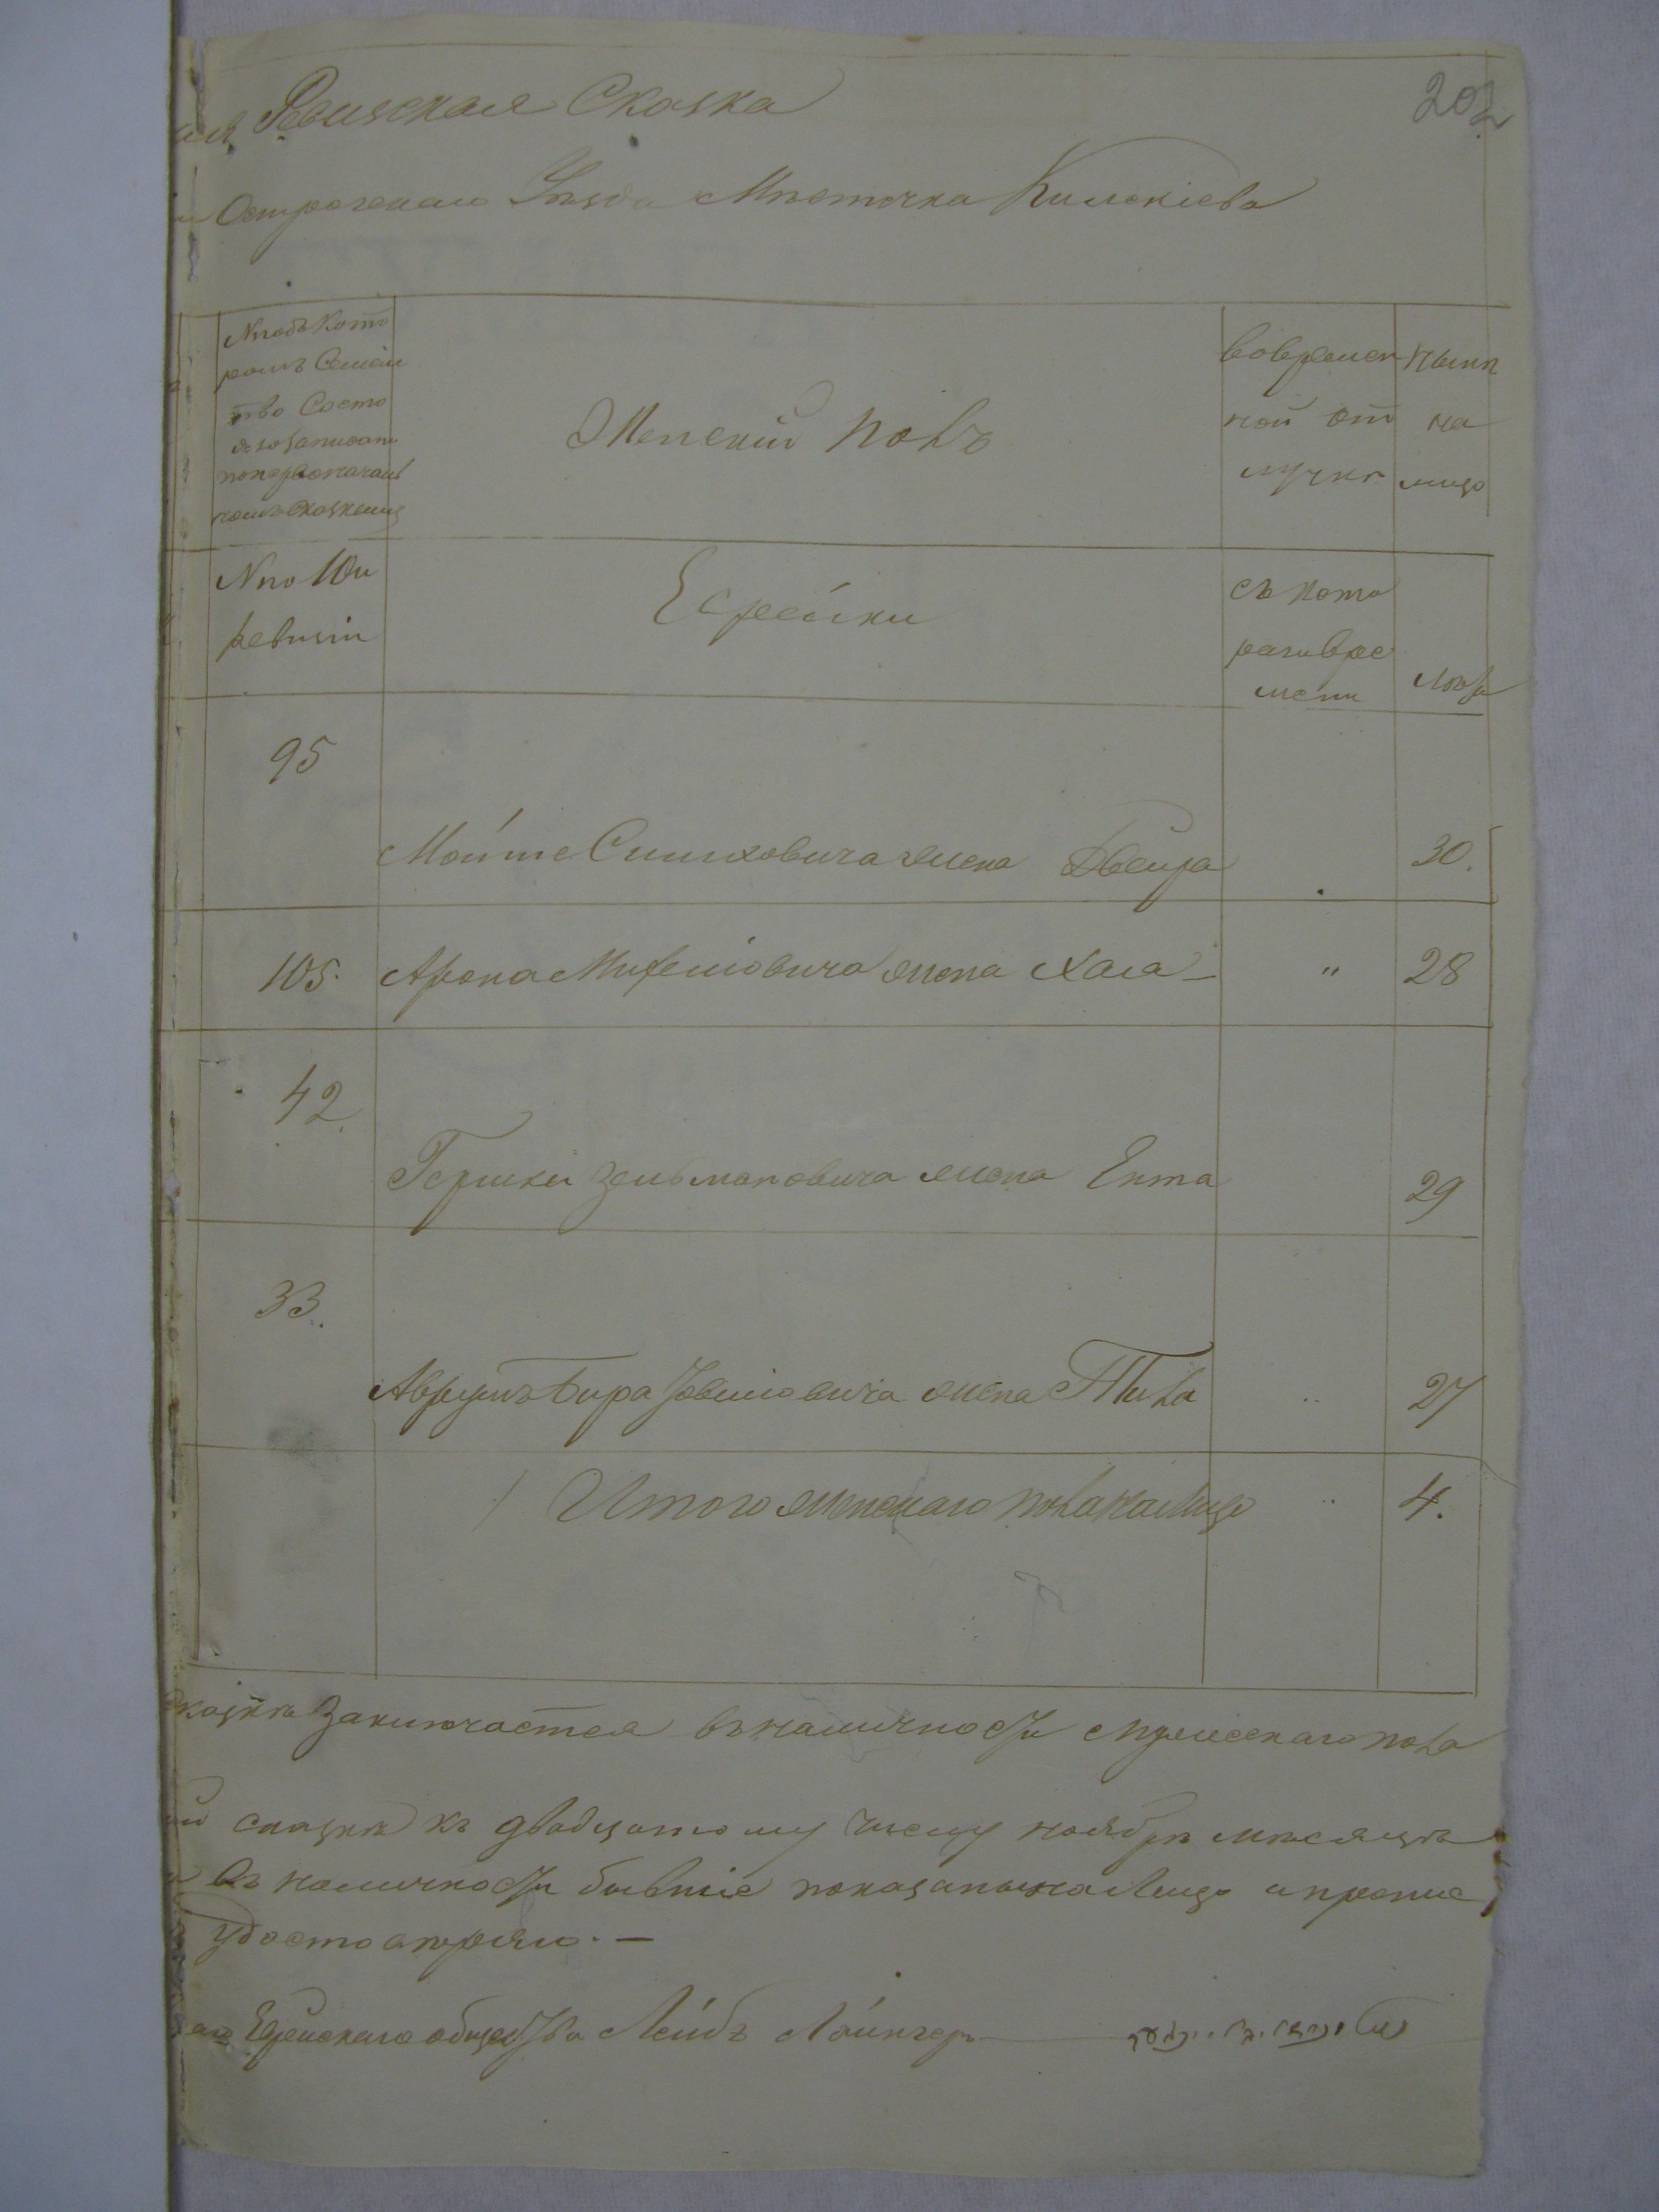 202
Ревизская Сказка
Острогскаго Уезда Мѣстечка Килекіева
№ подъ кото
рымъ Семей
ство Состо
записано
по первоначаль
ной Сказкеиз
Женскій полъ
во времен
ной от
лучкѣ
нынѣ
на
лицо
№ по 10й
ревизіи
Еврейки
съ кото
раго вре
мени
лѣта
95
Мошке Симховича жена Двейра
30.
105. Арона Михелiовича жена Хаiа „ 28
42.
Гершки Зельмановича жена Ента
29
33.
Аврумъ Бира Iовелiовича жена Тиля „ 27
Итого женскаго пола на лицо „ 4.
сказкѣ заключается въ наличности мужескаго пола
сказкѣ къ двадцатому числу ноября мѣсяца
въ наличности бывшіе показаны на лицо а прописн
удостоверяю. —
Еврейскаго общества Лейбъ